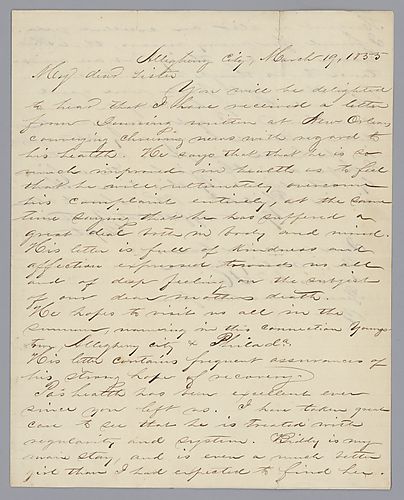 Allegheny City, March 19, 1855
My dear Sister
You will be delighted
to hear that I have received a letter
from Dunning written at New Orleans
conveying cheering news with regard to
his health. He says that that he is so
much improved in health as to feel
that he will ultimately overcome
his complaint entirely, at the same
time saying that he has suffered a
great deal both in body and mind.
His letter is full of kindness and
affection expressed towards us all
and of deep feeling on the subject
of our dear mothers death.
He hopes to visit us all in the
summer, naming in this connection Youngs
town, Allegheny City & Philada.
His letter contains frequent assurances of
his strong hope of recovery.
Pa's health has been excellent ever
since you left us. I have taken good
care to see that he is treated with
regularity and system. Biddy is my
main stay, and is even a much better
girl than I had expected to find her.